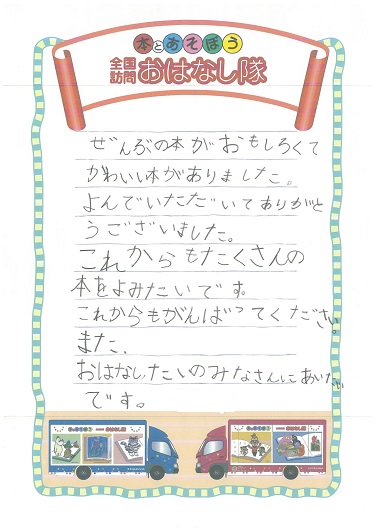 本とあそぼう
全国訪問おはなし隊
ぜんぶの本がおもしろくて
かわいい本がありました。
よんでいただいてありがと
うございました。
これからもたくさんの
本をよみたいです。
これからもがんばってください。
また、
おはなしたいのみなさんにあいたい
です。